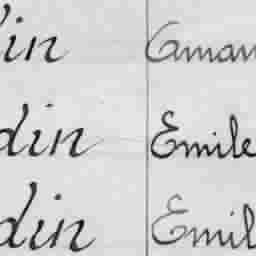 in Aman
din Emile
din Emil